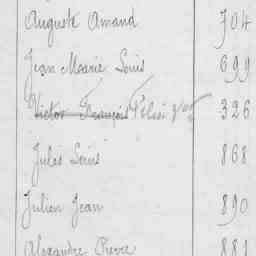 Auguste Amand 704
Jean Marie Louis 699
Victor François 326
Jules Louis 868
Julien Jean 890
Alexandre Pierre 881